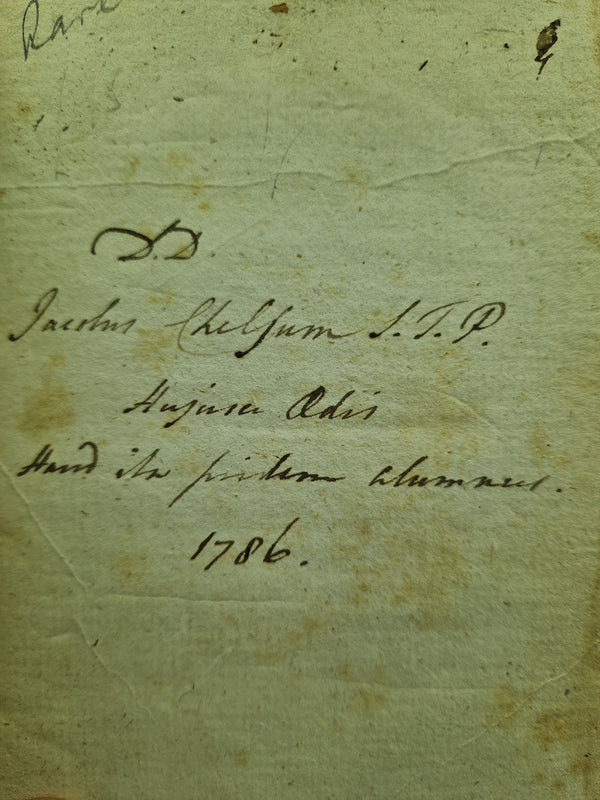 Rare
D.D.
Jacobus Chelsum S.T.P.
Hujusce Ædis
Haud ita pridem alumnus.
1786.